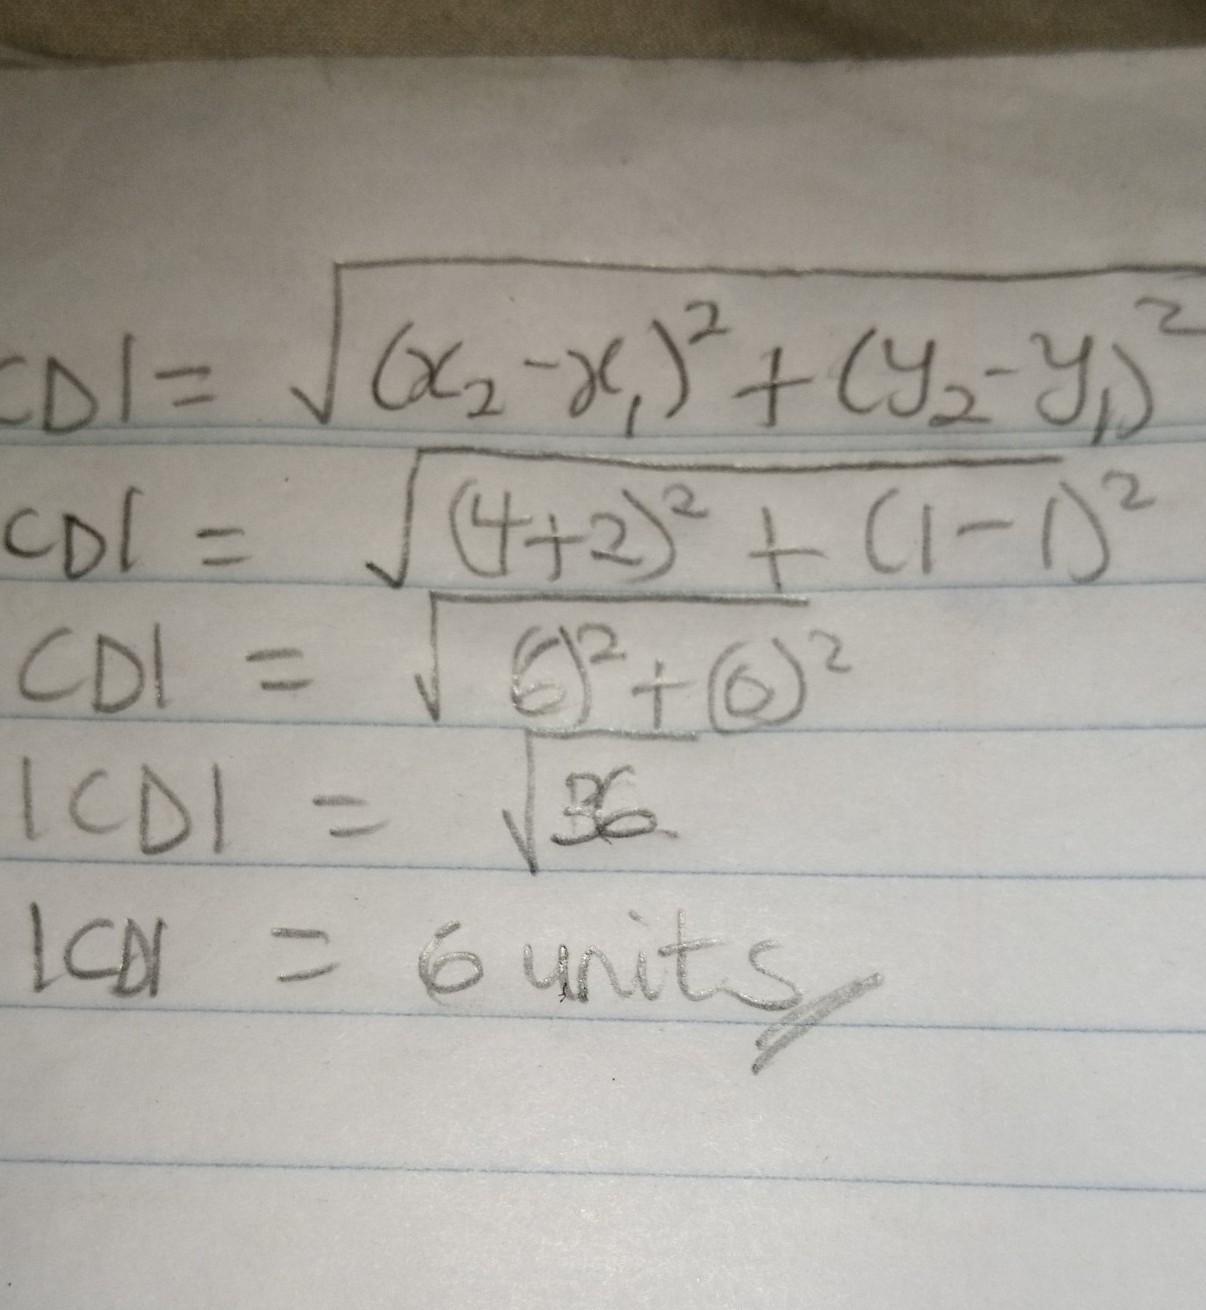 CD| = √(x₂-x₁)² + (y₂-y₁)²
CD| = √(4+2)² + (1-1)²
CD| = √6)² + (0)²
|CD| = √36
|CD| = 6 units